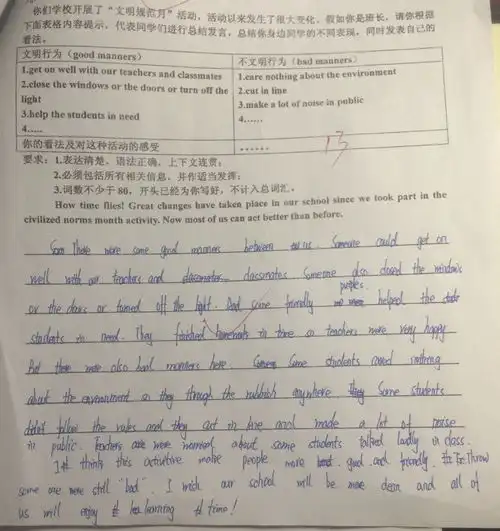 你们学校开展了“文明规范月”活动,活动以来发生了很大变化,假如你是班长,请你根据
下面表格内容提示,代表同学们进行总结发言,总结你身边同学的不同表现,同时发表自己的
看法。
文明行为(good manners) 不文明行为(bad manners)
1.get on well with our teachers and classmates 1.care nothing about the environment
2.close the windows or the doors or turn off the 2.cut in line
light 3.make a lot of noise in public
3.help the students in need 4......
4.....
你的看法及对这种活动的感受 ......
13
要求:1.表达清楚,语法正确,上下文连贯;
2.必须包括所有相关信息,并作适当发挥;
3.词数不少于 80,开头已经为你写好,不计入总词汇。
How time flies! Great changes have taken place in our school since we took part in the
civilized norms month activity. Now most of us can act better than before.
There were some good manners between us. Someone could get on
well with our teachers and classmates. Someone also closed the windows
or the doors or turned off the light. And some friendly peoples helped the
students in need. They finished homework in time so teachers were very happy
But there were also bad manners here. Some students cared nothing
about the environment so they through the rubbish anywhere. Some students
didn't follow the rules and they cut in line and made a lot of noise
in public. Teachers were worried about some students talked loudly in class.
I think this activitive make people more good and friendly.
some are were still "bad". I wish our school will be more clean and all of
us will enjoy learning time!